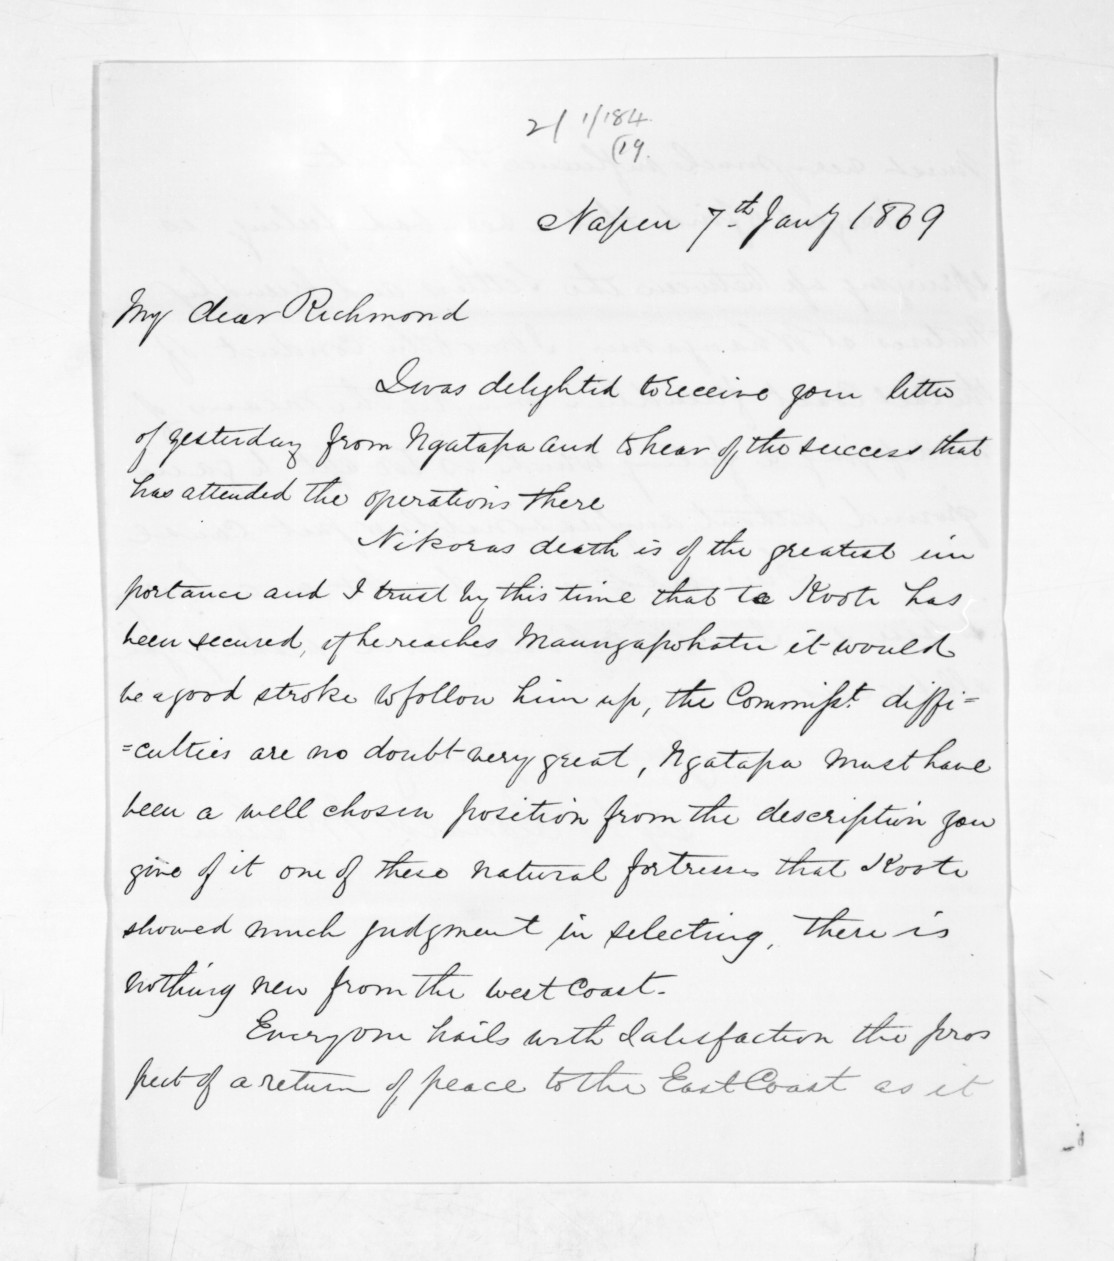 21 1/184.
(19.
Napier 7th Jany 1869
My dear Richmond
I was delighted to receive your letter
of yesterday from Ngatapa and to hear of the success that
has attended the operations there
Nikoras death is of the greatest im
portance and I trust by this time that te Kooti has
been secured, if he reaches Maungapohatu it would
be a good stroke to follow him up, the Commisst. diffi=
=culties are no doubt very great, Ngatapa must have
been a well chosen position from the description you
give of it one of these natural fortresses that Kooti
showed much judgment in selecting, there is
nothing new from the West Coast.
Everyone hails with satisfaction the pros
pect of a return of peace to the East Coast as it